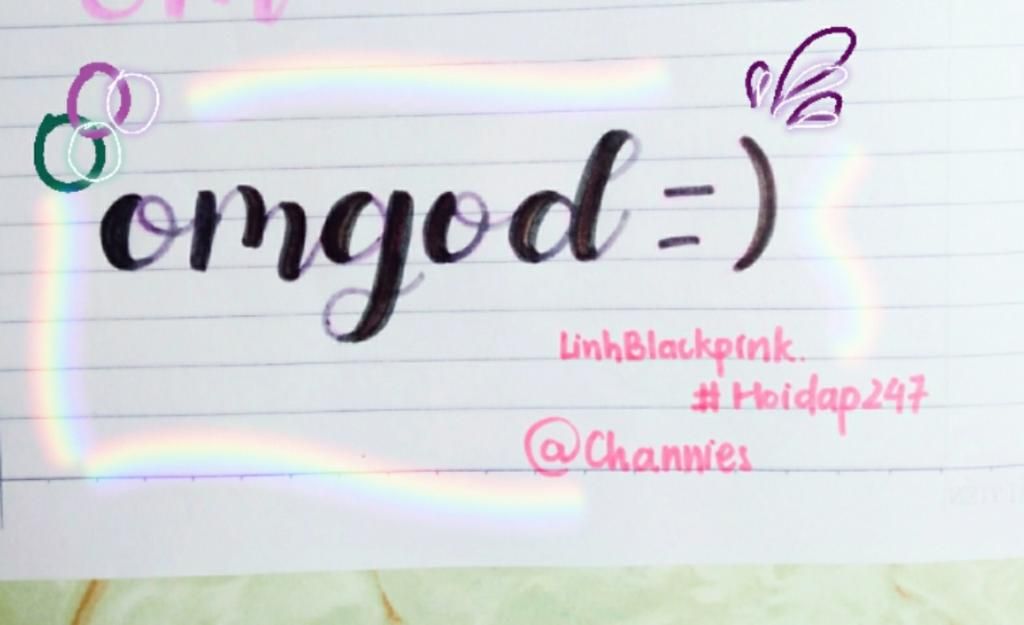 omgod =)
LinhBlackpink.
# Hoidap247
@Channies